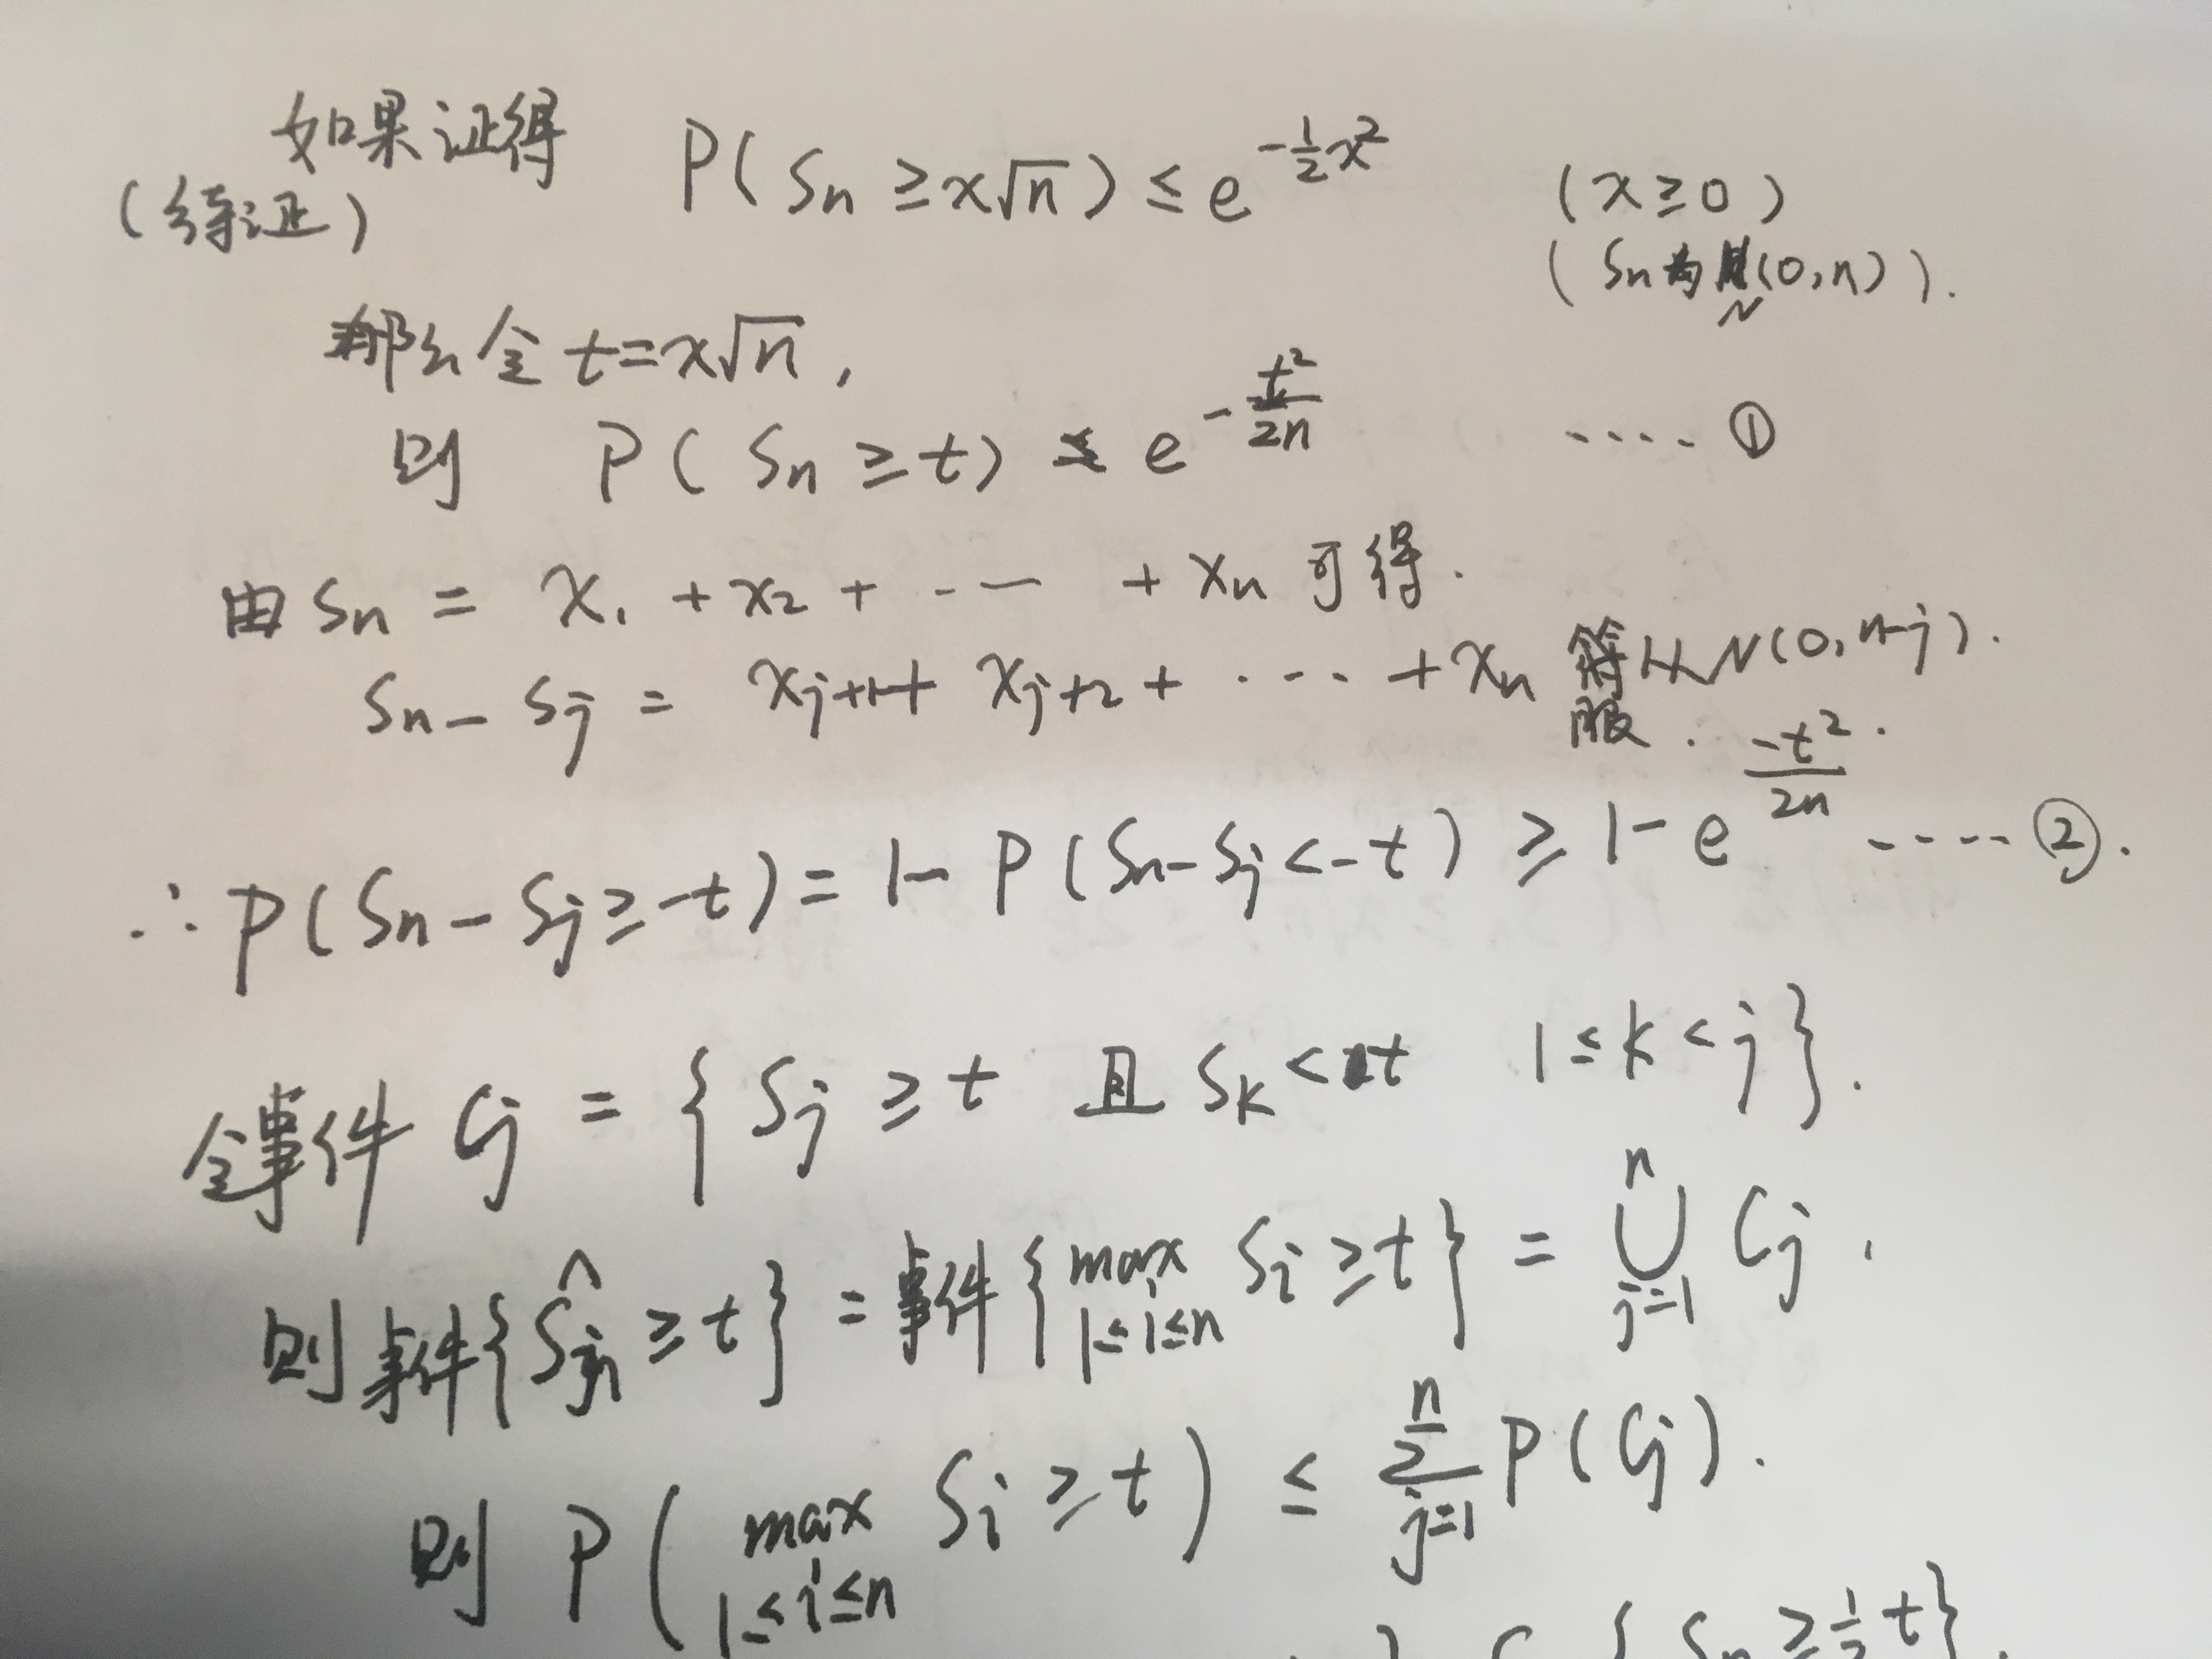 如果证得 P(Sn ≥ x√n) ≤ e^{-\frac{1}{2}x^2} (x ≥ 0)
(待证) (Sn为N(0,n)).
那么令 t=x√n,
则 P(Sn ≥ t) ≤ e^{-\frac{t^2}{2n}} ····①
由Sn = x₁ + x₂ + ··· + xn 可得.
Sn - Sj = xj+1 + xj+2 + ···· + xn 服从N(0,n-j).
∴ P(Sn - Sj ≥ -t) = 1 - P(Sn - Sj < -t) ≥ 1 - e^{\frac{-t^2}{2n}} ····②.
令事件 Cj = { Sj ≥ t 且 Sk < t 1 ≤ k < j }.
则事件{Ŝn ≥ t} = 事件{max_{1≤i≤n} Si ≥ t} = \bigcup_{j=1}^{n} Cj,
则 P( max_{1≤i≤n} Si ≥ t ) ≤ \sum_{j=1}^{n} P(Cj).
} { Sn ≥ \frac{1}{2} t}.